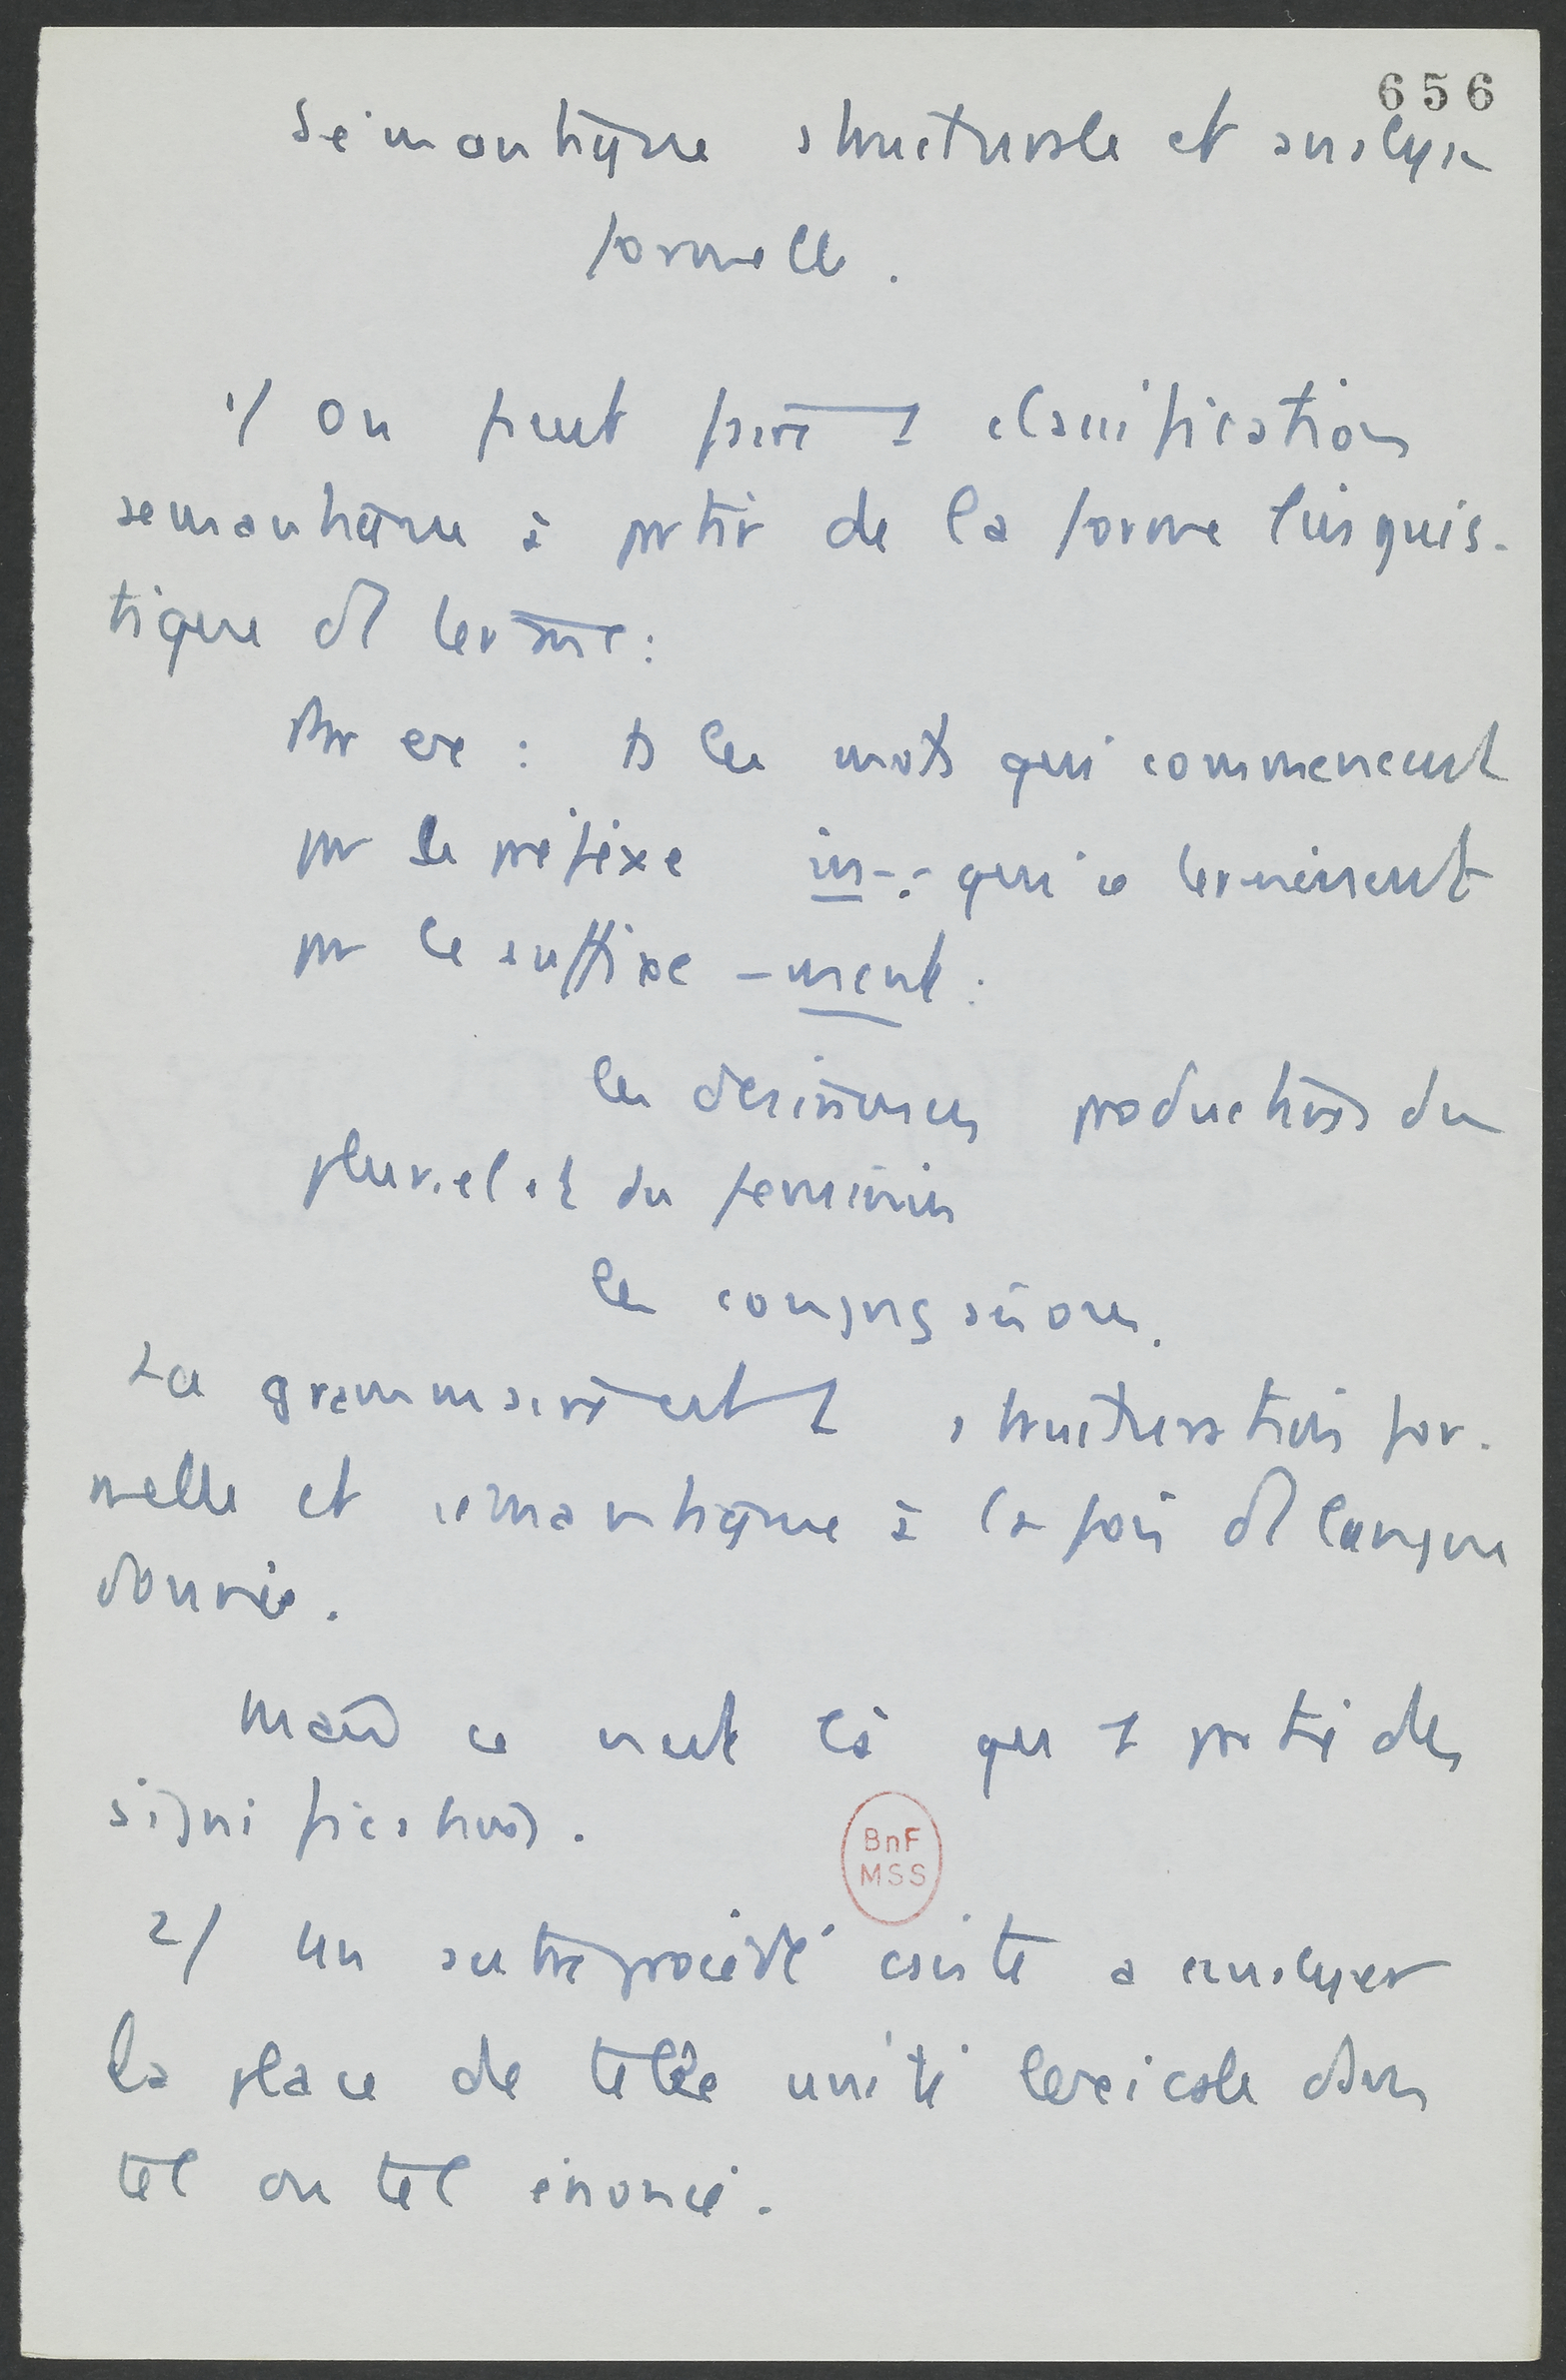 656
Sémantique structurale et analyse
formelle.
1/ On peut faire 1 classification
semantique à partir de la forme linguis-
tique d'1 terme :
Par ex : ts les mots qui commencent
par le préfixe in-. qui se terminent
par le suffixe -ment :
les desinences productives du
pluriel et du feminin
les conjugaisons.
La grammaire est 1 structuration for-
melle et semantique à la fois d'1 langue
donnée.
Mais ce n'est là que 1 partie des
significations.
BnF
MSS
2/ Un autre procédé consiste a analyser
la place de telle unité lexicale dans
tel ou tel énoncé.